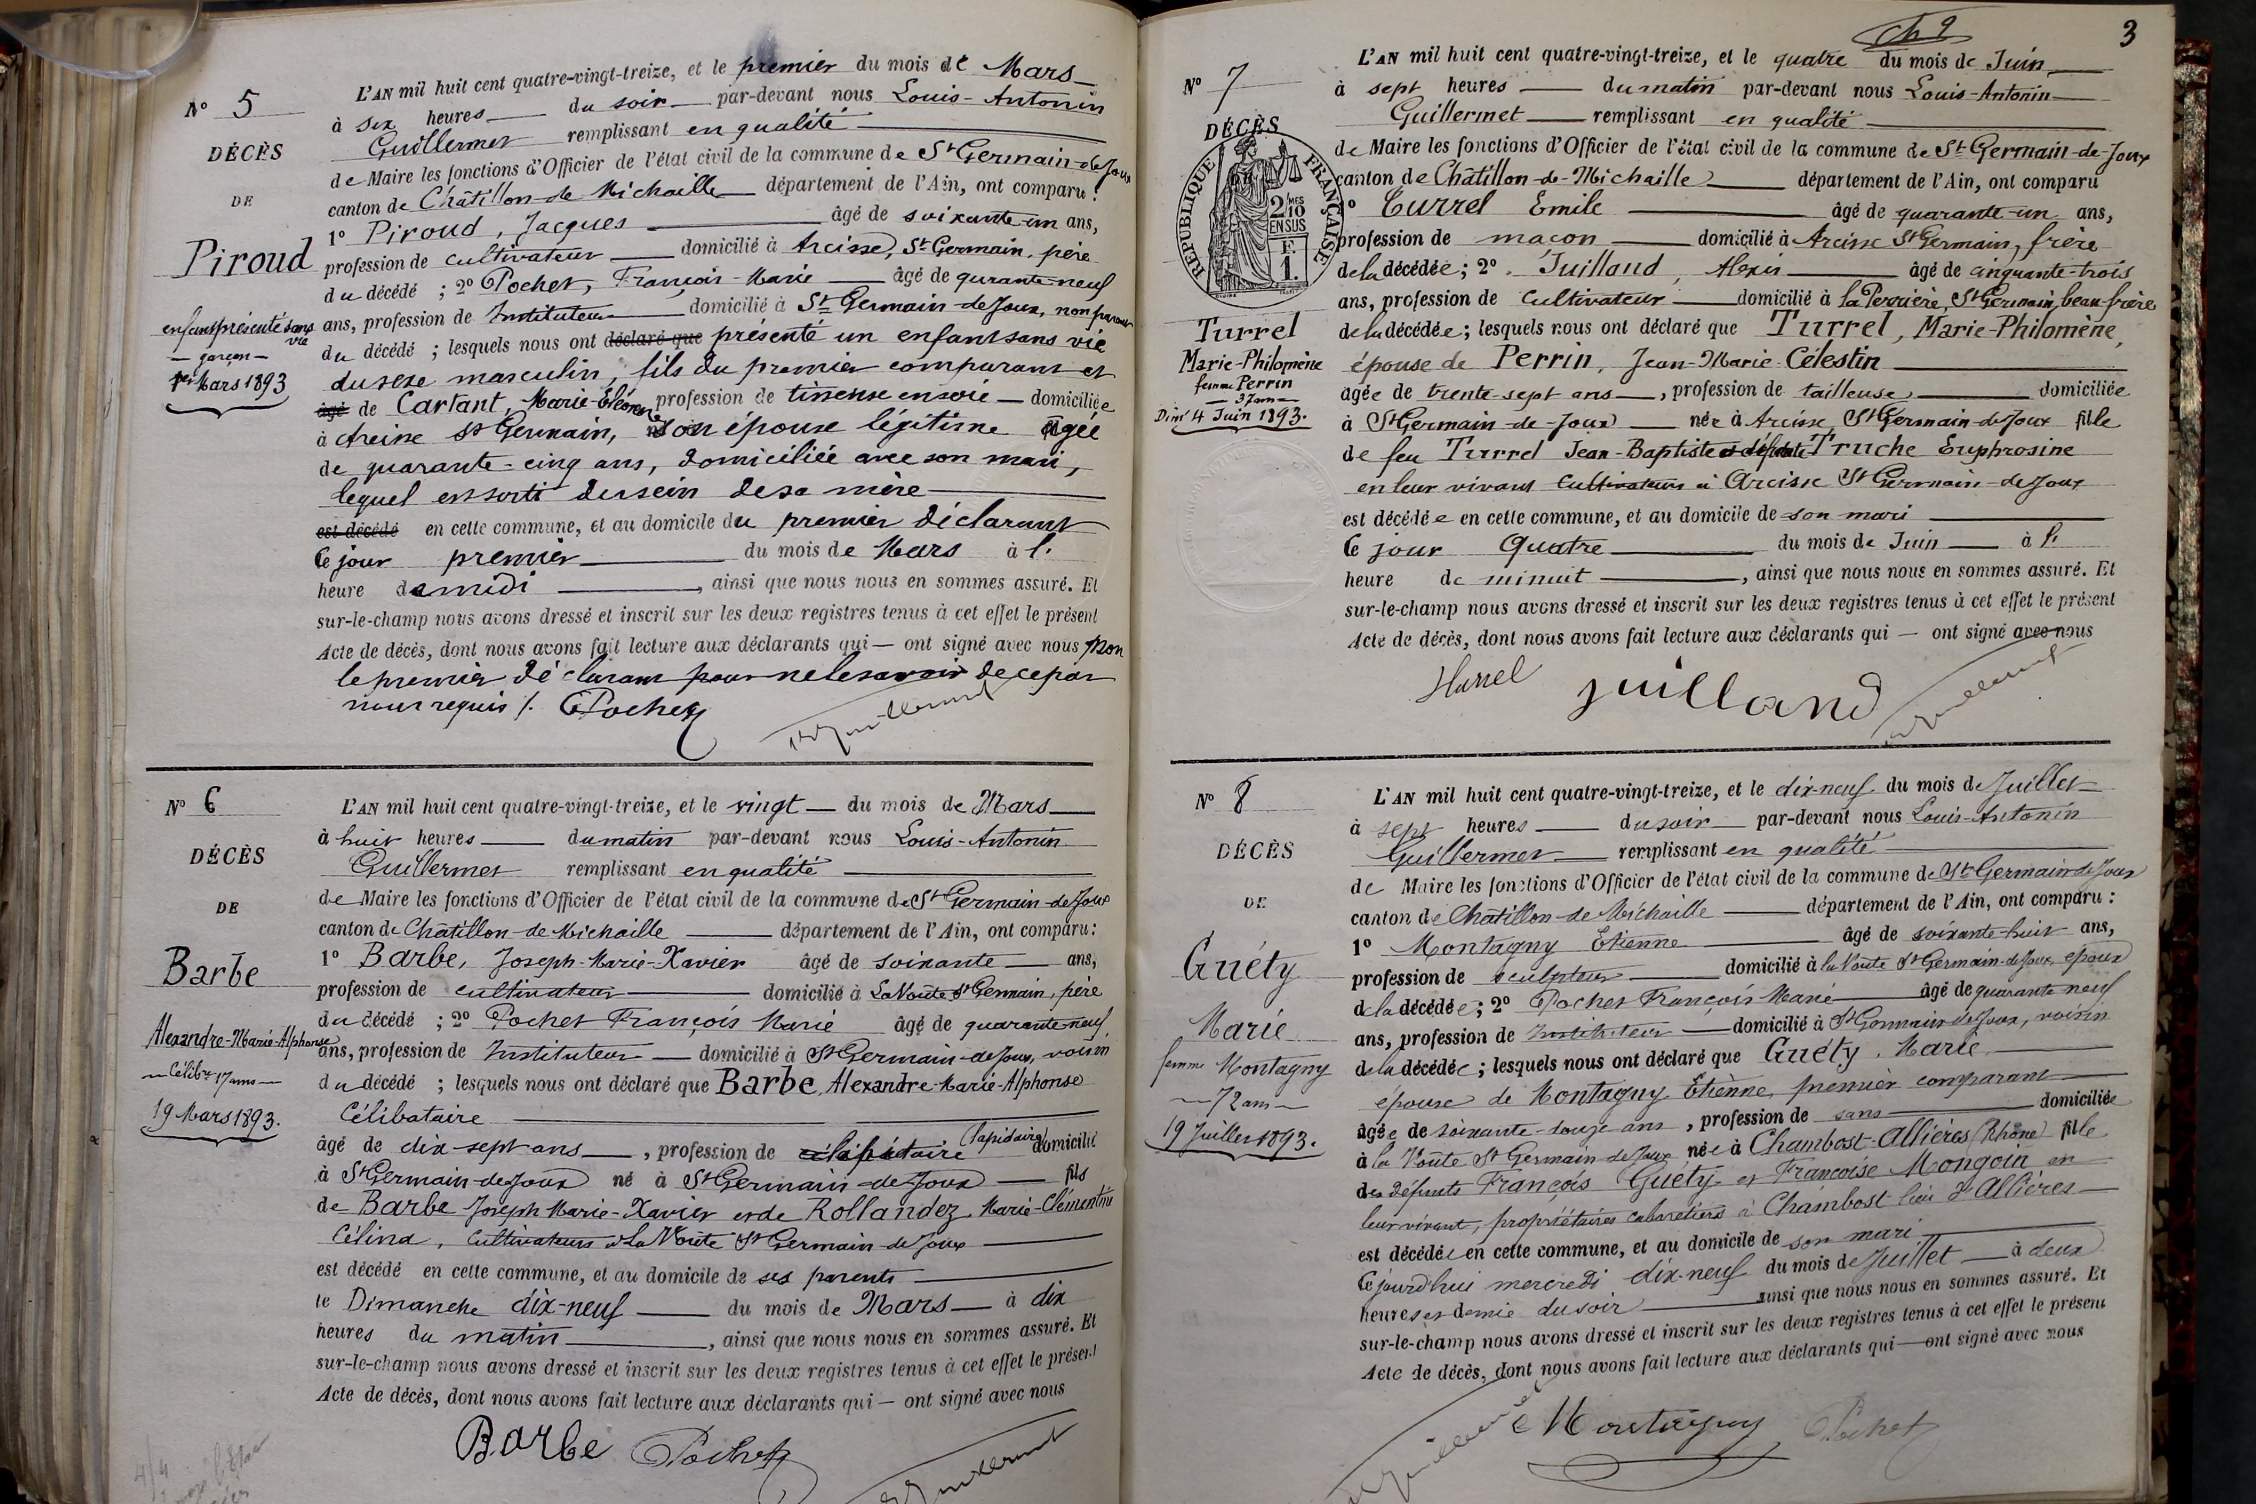 N° 5
DÉCÈS
DE
Piroud
enfant présenté sans
vie
— garçon —
1er Mars 1893
L'AN mil huit cent quatre-vingt-treize, et le premier du mois de Mars
à six heures du soir par-devant nous Louis-Antonin
Guillermet remplissant en qualité
de Maire les fonctions d'Officier de l'état civil de la commune de St Germain-de-Joux
canton de Châtillon-de-Michaille département de l'Ain, ont comparu :
1° Piroud, Jacques âgé de soixante-un ans,
profession de cultivateur domicilié à Arcisse, St Germain, père
du décédé ; 2° Pochet, François-Marie âgé de qurante-neuf
ans, profession de Instituteur domicilié à St Germain-de-Joux, non parent
du décédé ; lesquels nous ont déclaré que présenté un enfant sans vie
du sexe masculin, fils du premier comparant et
âgé de Cartant, Marie-Eléonore profession de tisseuse en soie domiciliée
à Arcisse St Germain, son épouse légitime âgée
de quarante-cinq ans, domiciliée avec son mari,
lequel est sorti du sein de sa mère
est décédé en cette commune, et au domicile du premier déclarant
ce jour premier du mois de Mars à l'
heure de midi, ainsi que nous nous en sommes assuré. Et
sur-le-champ nous avons dressé et inscrit sur les deux registres tenus à cet effet le présent
Acte de décès, dont nous avons fait lecture aux déclarants qui — ont signé avec nous non
le premier déclarant pour ne le savoir de ce par
nous requis /. Pochet
Guillermet
N° 6
DÉCÈS
DE
Barbe
Alexandre-Marie-Alphonse
— Célibre 17 ans —
19 Mars 1893.
L'AN mil huit cent quatre-vingt-treize, et le vingt du mois de Mars
à huit heures du matin par-devant nous Louis-Antonin
Guillermet remplissant en qualité
de Maire les fonctions d'Officier de l'état civil de la commune de St Germain-de-Joux
canton de Châtillon-de-Michaille département de l'Ain, ont comparu :
1° Barbe, Joseph-Marie-Xavier âgé de soixante ans,
profession de cultivateur domicilié à La Voûte St Germain, père
du décédé ; 2° Pochet François Marie âgé de quarante neuf
ans, profession de Instituteur domicilié à St Germain-de-Joux, voisin
du décédé ; lesquels nous ont déclaré que Barbe, Alexandre-Marie-Alphonse
Célibataire
âgé de dix-sept ans, profession de lapidaire domicilié
à St Germain-de-Joux né à St Germain-de-Joux fils
de Barbe Joseph Marie-Xavier et de Rollandez Marie-Clémentine
Célina, cultivateurs à La Voûte St Germain-de-Joux
est décédé en cette commune, et au domicile de ses parents
le Dimanche dix-neuf du mois de Mars à dix
heures du matin, ainsi que nous nous en sommes assuré. Et
sur-le-champ nous avons dressé et inscrit sur les deux registres tenus à cet effet le présent
Acte de décès, dont nous avons fait lecture aux déclarants qui — ont signé avec nous
Barbe Pochet
Guillermet
3
N° 7
DÉCÈS
RÉPUBLIQUE FRANÇAISE
2/10MES
EN SUS
F.
1.
Turrel
Marie-Philomène
femme Perrin
— 37 ans —
Dim. 4 Juin 1893.
L'AN mil huit cent quatre-vingt-treize, et le quatre du mois de Juin
à sept heures du matin par-devant nous Louis-Antonin
Guillermet remplissant en qualité
de Maire les fonctions d'Officier de l'état civil de la commune de St Germain-de-Joux
canton de Châtillon-de-Michaille département de l'Ain, ont comparu
1° Turrel Emile âgé de quarante-un ans,
profession de maçon domicilié à Arcisse St Germain, frère
de la décédée ; 2° Juilland, Alexis âgé de cinquante-trois
ans, profession de cultivateur domicilié à la Perrière, St Germain, beau-frère
de la décédée ; lesquels nous ont déclaré que Turrel, Marie-Philomène,
épouse de Perrin, Jean-Marie-Célestin
âgée de trente-sept ans, profession de tailleuse domiciliée
à St Germain-de-Joux née à Arcisse, St Germain-de-Joux fille
de feu Turrel Jean-Baptiste et défunte Truche Euphrosine
en leur vivant cultivateurs à Arcisse St Germain-de-Joux
est décédée en cette commune, et au domicile de son mari
ce jour Quatre du mois de Juin à l'
heure de minuit, ainsi que nous nous en sommes assuré. Et
sur-le-champ nous avons dressé et inscrit sur les deux registres tenus à cet effet le présent
Acte de décès, dont nous avons fait lecture aux déclarants qui — ont signé avec nous
Turrel Juilland
Guillermet
N° 8
DÉCÈS
DE
Guéty
Marie
femme Montagny
— 72 ans —
19 Juillet 1893.
L'AN mil huit cent quatre-vingt-treize, et le dix-neuf du mois de Juillet
à sept heures du soir par-devant nous Louis-Antonin
Guillermet remplissant en qualité
de Maire les fonctions d'Officier de l'état civil de la commune de St Germain de Joux
canton de Châtillon-de-Michaille département de l'Ain, ont comparu :
1° Montagny Etienne âgé de soixante-huit ans,
profession de sculpteur domicilié à la Voûte St Germain-de-Joux époux
de la décédée ; 2° Pochet François Marie âgé de quarante neuf
ans, profession de Instituteur domicilié à St Germain de Joux, voisin
de la décédée ; lesquels nous ont déclaré que Guéty, Marie
épouse de Montagny Etienne, premier comparant
âgée de soixante-douze ans, profession de sans domiciliée
à la Voûte St Germain-de-Joux née à Chambost-Allières (Rhône) fille
des défunts François Guéty et Françoise Mongoin en
leur vivant, propriétaires cabaretiers à Chambost lieu d'Allières
est décédée en cette commune, et au domicile de son mari
Cejourd'hui mercredi dix-neuf du mois de Juillet à deux
heures et demie du soir ainsi que nous nous en sommes assuré. Et
sur-le-champ nous avons dressé et inscrit sur les deux registres tenus à cet effet le présent
Acte de décès, dont nous avons fait lecture aux déclarants qui — ont signé avec nous
Guillermet Montagny Pochet